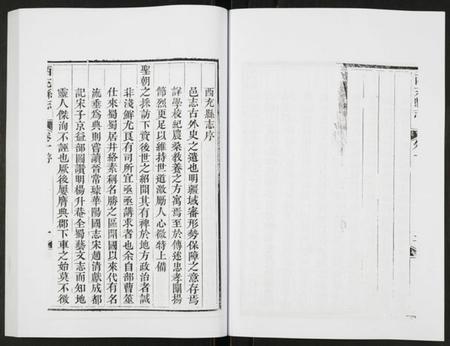 西充縣志序
邑志古外史之遺也明疆域審形勢保障之意存焉
詳學校紀農桑教養之方寓焉至於傳述忠孝闡揚
節烈更足以維持世道激勵人心微特上備
聖朝之採訪下資後世之紹聞其有裨於地方政治者誠
非淺鮮尤良有司所宜亟亟講求者也余自部曹筮
仕來蜀蜀居井絡素稱名勝之區開國以來代有名
流垂為典則嘗讀晉常璩華陽國志宋趙清獻成都
記宋子京益部圖讚明楊升菴全蜀藝文志而知地
靈人傑洵不誣也厥後屢膺典郡下車之始莫不徵
西充縣志
卷一序
一